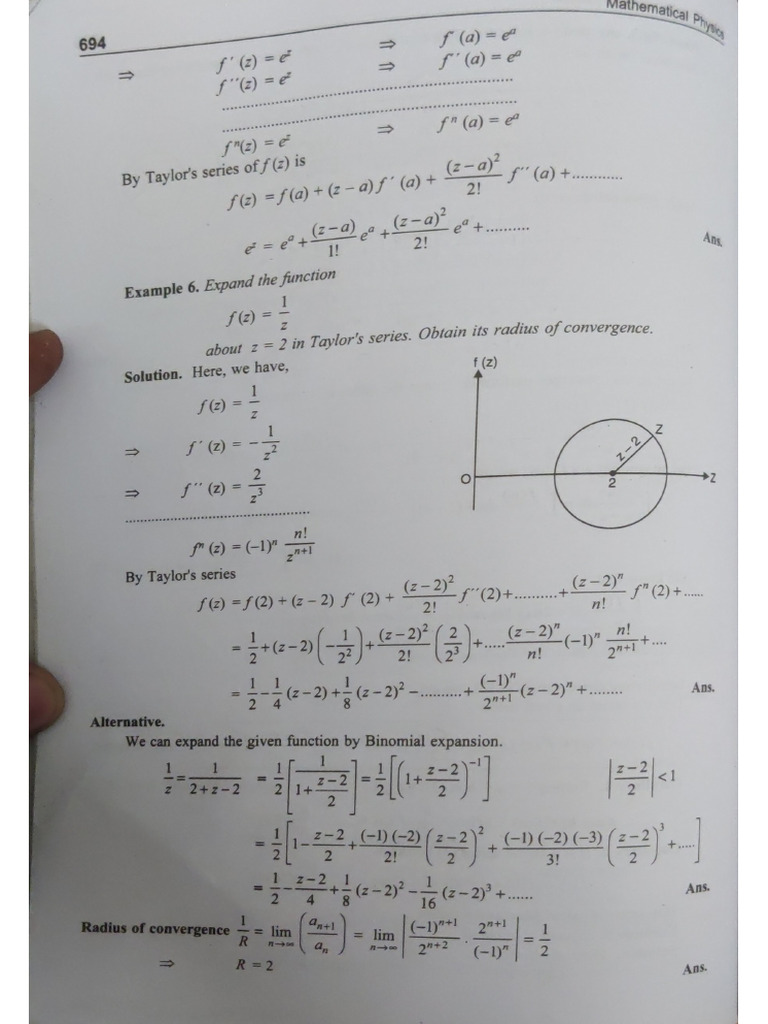 694
Mathematical Physics
⇒ f ′ (z) = eᶻ ⇒ f (a) = eᵃ
f ′′(z) = eᶻ ⇒ f ′ (a) = eᵃ
..........................................................................
..........................................................................
fⁿ(z) = eᶻ ⇒ f ⁿ (a) = eᵃ
By Taylor's series of f (z) is
f (z) = f (a) + (z – a) f ′ (a) + (z – a)²/2! f ′′ (a) +............
eᶻ = eᵃ + (z – a)/1! eᵃ + (z – a)²/2! eᵃ +..........
Ans.
Example 6. Expand the function
f (z) = 1/z
about z = 2 in Taylor's series. Obtain its radius of convergence.
Solution. Here, we have,
f (z)
f (z) = 1/z
Z
z – 2
⇒ f ′ (z) = – 1/z²
O
2
Z
⇒ f ′′ (z) = 2/z³
................................................
fⁿ (z) = (–1)ⁿ n!/zⁿ⁺¹
By Taylor's series
f (z) = f (2) + (z – 2) f ′ (2) + (z – 2)²/2! f ′′(2)+..........+ (z – 2)ⁿ/n! fⁿ (2) +......
= 1/2 + (z – 2) (– 1/2²) + (z – 2)²/2! (2/2³) +..... (z – 2)ⁿ/n! (–1)ⁿ n!/2ⁿ⁺¹ +....
= 1/2 – 1/4 (z – 2) + 1/8 (z – 2)² – .......... + (–1)ⁿ/2ⁿ⁺¹ (z – 2)ⁿ + ........ Ans.
Alternative.
We can expand the given function by Binomial expansion.
1/z = 1/(2 + z – 2) = 1/2 [1/(1 + (z – 2)/2)] = 1/2 [(1 + (z – 2)/2)⁻¹] |(z – 2)/2| < 1
= 1/2 [1 – (z – 2)/2 + (–1) (–2)/2! ((z – 2)/2)² + (–1) (–2) (–3)/3! ((z – 2)/2)³ + .....]
= 1/2 – (z – 2)/4 + 1/8 (z – 2)² – 1/16 (z – 2)³ + ...... Ans.
Radius of convergence 1/R = lim n→∞ (aₙ₊₁/aₙ) = lim n→∞ |(–1)ⁿ⁺¹/2ⁿ⁺² · 2ⁿ⁺¹/(–1)ⁿ| = 1/2
⇒ R = 2 Ans.